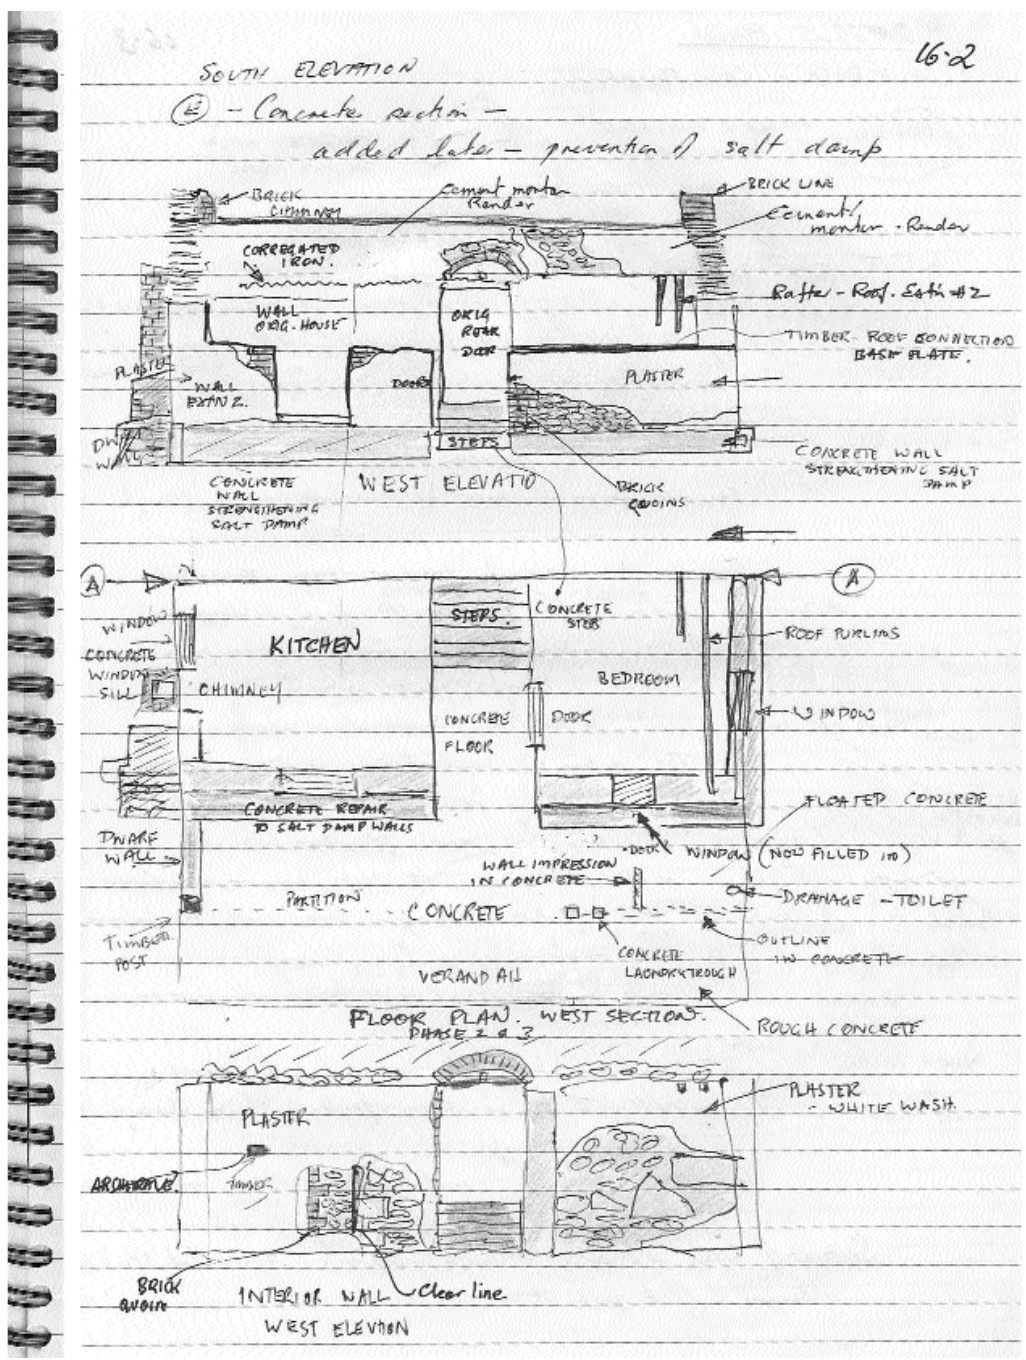 16.2
SOUTH ELEVATION
(E) - Concrete section -
added later - prevention of salt damp
BRICK
CHIMNEY
Cement mortar
Render
BRICK LINE
Cement/
mortar - Render
CORREGATED
IRON.
Rafter - Roof. Extn #2
WALL
ORIG. HOUSE
ORIG
REAR
DOOR
TIMBER ROOF CONNECTION
BASE PLATE.
PLASTER
WALL
EXTN 2.
DOOR
PLASTER
WALL
STEPS
CONCRETE WALL
STRENGTHENING SALT
DAMP
CONCRETE
WALL
STRENGTHENING
SALT DAMP
WEST ELEVATIO
BRICK
QUOINS
A
A
WINDOW
CONCRETE
WINDOW
SILL
KITCHEN
STEPS.
CONCRETE
STEP
ROOF PURLINS
BEDROOM
CHIMNEY
CONCRETE
FLOOR
DOOR
WINDOW
CONCRETE REPAIR
TO SALT DAMP WALLS
FLOATED CONCRETE
DWARF
WALL
DOOR
WINDOW (NOW FILLED IN)
WALL IMPRESSION
IN CONCRETE
PARTITION
CONCRETE
DRAINAGE - TOILET
TIMBER
POST
OUTLINE
IN CONCRETE
CONCRETE
LAUNDRY TROUGH
VERANDAH
FLOOR PLAN. WEST SECTION.
PHASE 2 & 3
ROUGH CONCRETE
PLASTER
PLASTER
- WHITE WASH.
TIMBER
BRICK
QUOIN
INTERIOR WALL
Clear line
WEST ELEVTION